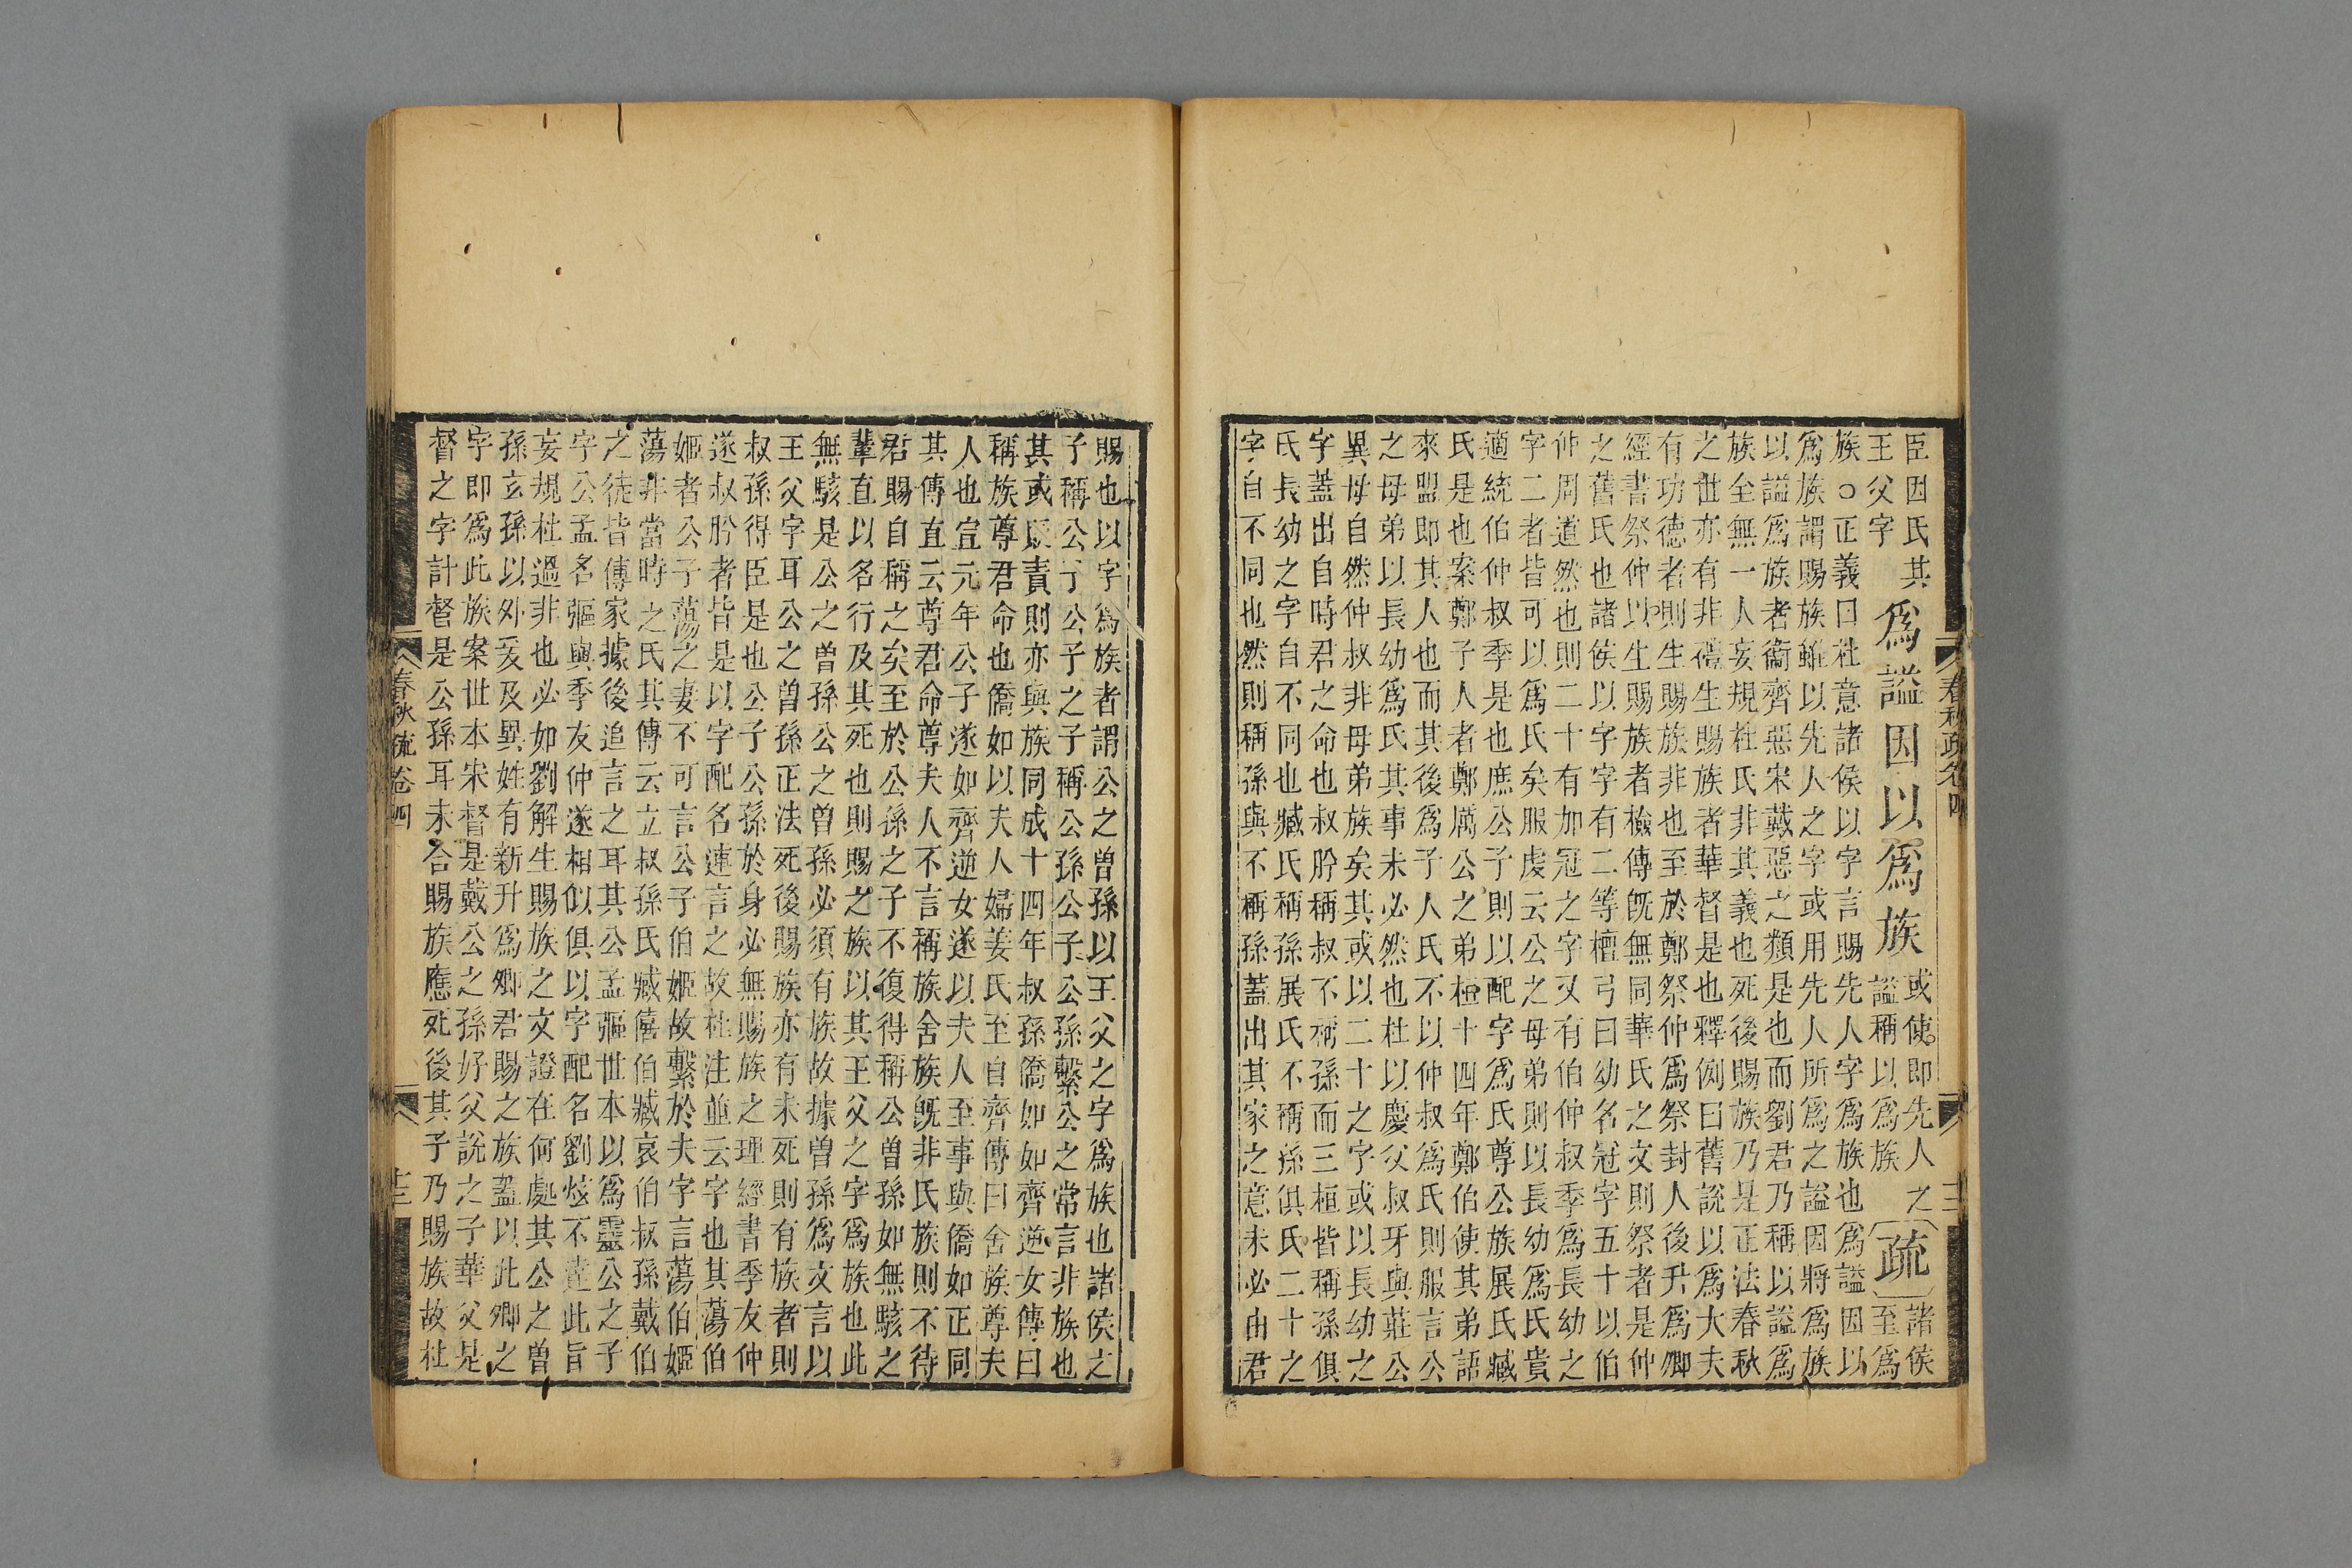 臣因氏其
王父字
爲謚因以爲族
或使即先人之
謚稱以爲族
疏
諸侯
至爲
族○正義曰杜意諸侯以字言賜先人字爲族也爲謚因以
爲族謂賜族雖以先人之字或用先人所爲之謚因將爲族
以謚爲族者衞齊惡宋戴惡之類是也而劉君乃稱以謚爲
族全無一人妄規杜氏非其義也死後賜族乃是正法春秋
之世亦有非禮生賜族者華督是也釋例曰舊說以爲大夫
有功德者則生賜族非也至於鄭祭仲爲祭封人後升爲卿
經書祭仲以生賜族者檢傳旣無同華氏之文則祭者是仲
之舊氏也諸侯以字字有二等檀弓曰幼名冠字五十以伯
仲周道然也則二十有加冠之字又有伯仲叔季爲長幼之
字二者皆可以爲氏矣服虔云公之母弟則以長幼爲氏貴
適統伯仲叔季是也庶公子則以配字爲氏尊公族展氏臧
氏是也案鄭子人者鄭厲公之弟桓十四年鄭伯使其弟語
來盟即其人也而其後爲子人氏不以仲叔爲氏則服言公
之母弟以長幼爲氏其事未必然也杜以慶父叔牙與莊公
異母自然仲叔非母弟族矣其或以二十之字或以長幼之
字蓋出自時君之命也叔肹稱叔不稱孫而三桓皆稱孫俱
氏長幼之字自不同也臧氏稱孫展氏不稱孫俱氏二十之
字自不同也然則稱孫與不稱孫蓋出其家之意未必由君
賜也以字爲族者謂公之曾孫以王父之字爲族也諸侯之
子稱公子公子之子稱公孫公子公孫繫公之常言非族也
其或貶責則亦與族同成十四年叔孫僑如如齊逆女傳曰
稱族尊君命也僑如以夫人婦姜氏至自齊傳曰舍族尊夫
人也宣元年公子遂如齊逆女遂以夫人至事與僑如正同
其傳直云尊君命尊夫人不言稱族舍族旣非氏族則不待
君賜自稱之矣至於公孫之子不復得稱公曾孫如無駭之
輩直以名行及其死也則賜之族以其王父之字爲族也此
無駭是公之曾孫公之曾孫必須有族故據曾孫爲文言以
王父字耳公之曾孫正法死後賜族亦有未死則有族者則
叔孫得臣是也公子公孫於身必無賜族之理經書季友仲
遂叔肹者皆是以字配名連言之故杜注並云字也其蕩伯
姬者公子蕩之妻不可言公子伯姬故繫於夫字言蕩伯姬
蕩非當時之氏其傳云立叔孫氏臧僖伯臧哀伯叔孫戴伯
之徒皆傳家據後追言之耳其公孟彄世本以爲靈公之子
字公孟名彄與季友仲遂相似俱以字配名劉炫不達此旨
妄規杜過非也必如劉解生賜族之文證在何處其公之曾
孫玄孫以外爰及異姓有新升爲卿君賜之族蓋以此卿之
字即爲此族案世本宋督是戴公之孫好父說之子華父是
督之字計督是公孫耳未合賜族應死後其子乃賜族故杜
春秋疏卷四